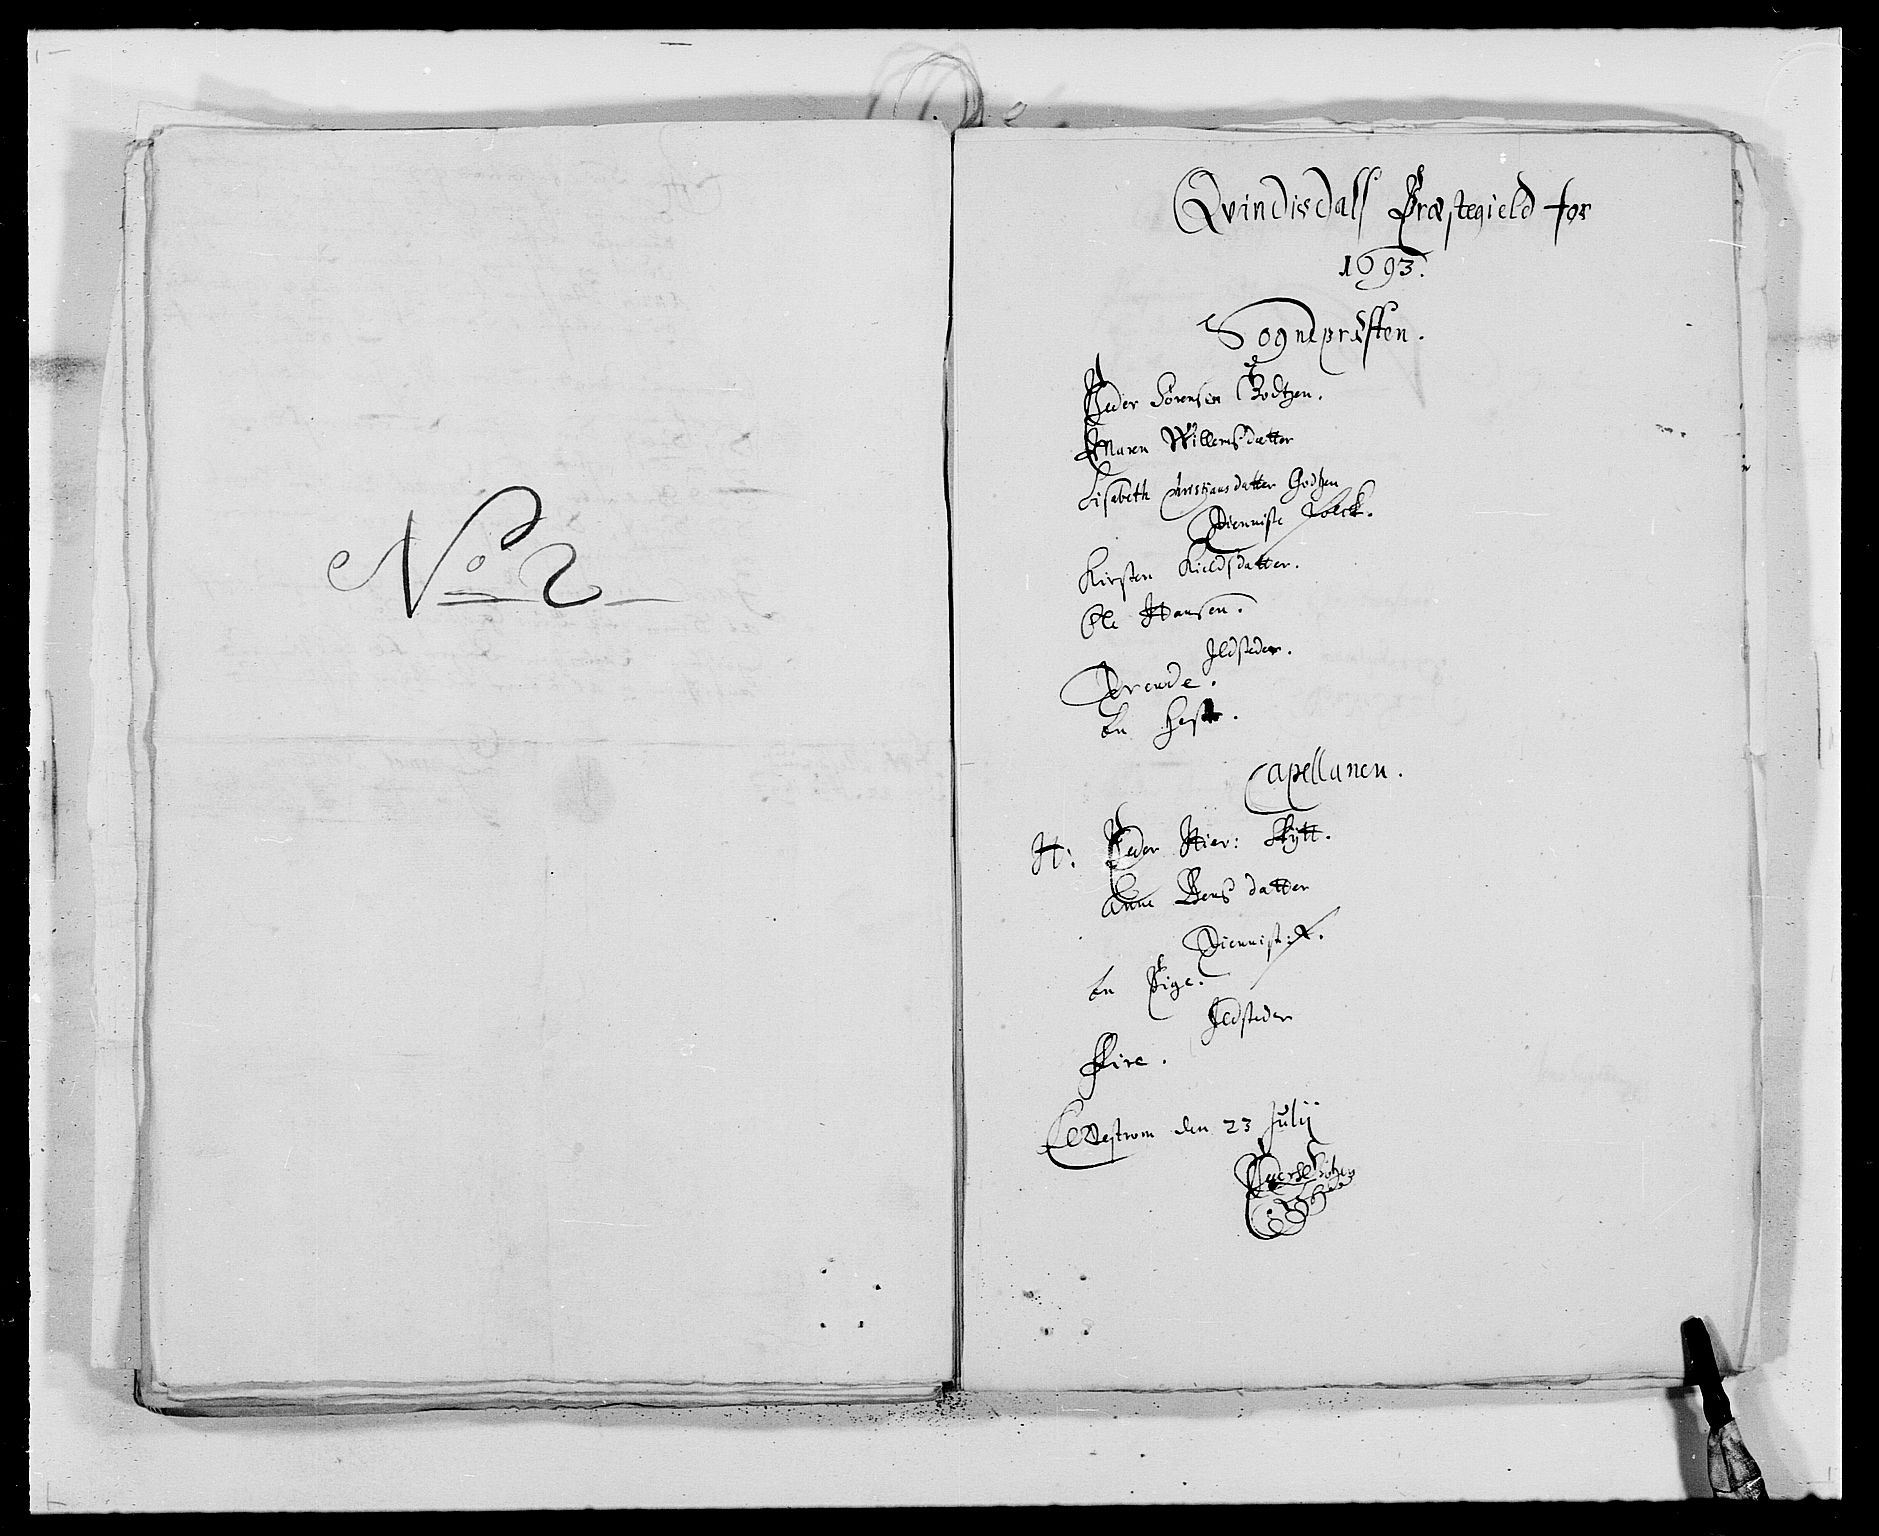 No 2
Qvindisdalſ Præstegield for
1693.
Sognepræsten.
Peder Sörensen Godtzen.
Maren Willemsdatter
Lisabeth Christiansdatter Godtzen
Dienniste folck.
Kirsten Kieldsdatter.
Ole Hansen.
Jldsteder.
En hest.
Capellanen.
H: Peder Hier: Skÿtt.
Anne Bensdatter
Diennist: f.
En Pige.
Jldsteder
Fire.
den 23 Julij